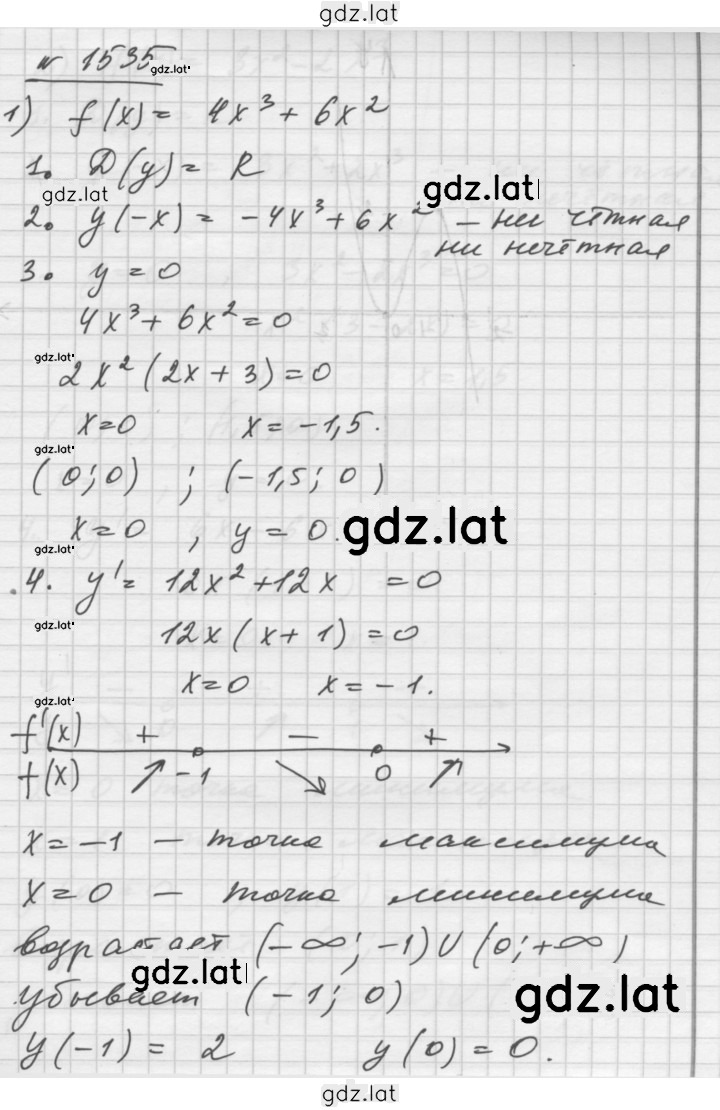 gdz.lat
№ 1535
gdz.lat
1) f(x) = 4x³ + 6x²
1. D(y) = R
gdz.lat
gdz.lat
2. y(-x) = -4x³ + 6x² – ни чётная
ни нечётная
3. y = 0
4x³ + 6x² = 0
gdz.lat
2x² (2x + 3) = 0
x = 0 x = -1,5.
gdz.lat
(0; 0) ; (-1,5; 0)
x = 0 , y = 0.
gdz.lat
gdz.lat
4. y' = 12x² + 12x = 0
gdz.lat
12x (x + 1) = 0
x = 0 x = -1.
gdz.lat
f'(x) + – +
f(x) ↗ -1 ↘ 0 ↗
x = -1 – точка максимума
x = 0 – точка минимума
возрастает (-∞; -1) ∪ (0; +∞)
gdz.lat
убывает (-1; 0)
gdz.lat
y(-1) = 2 y(0) = 0.
gdz.lat